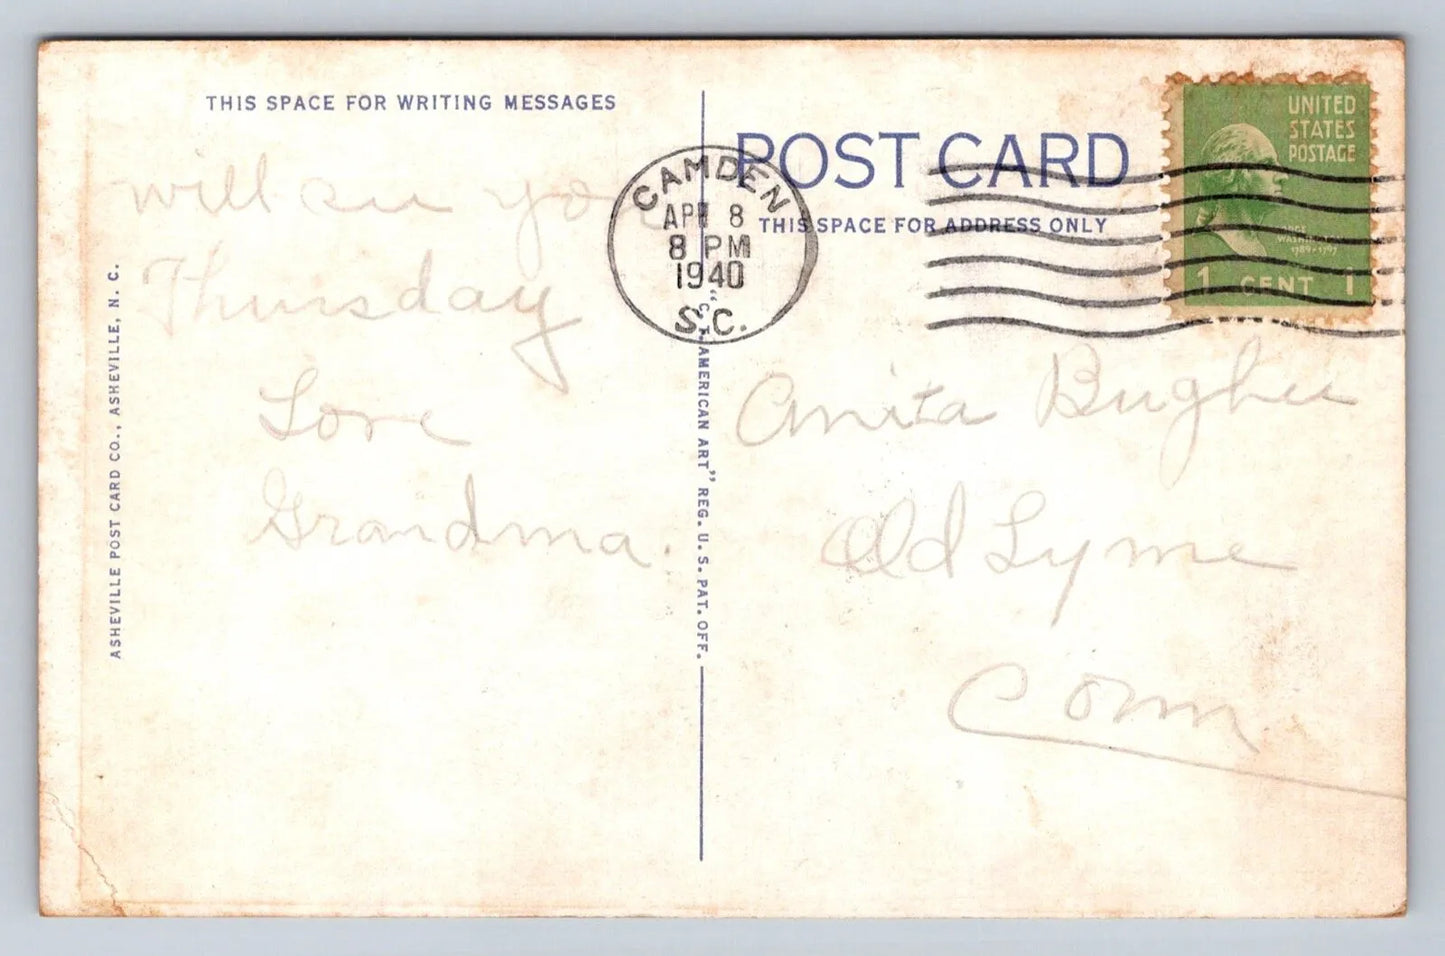 THIS SPACE FOR WRITING MESSAGES
will see you
Thursday
Love
Grandma.
ASHEVILLE POST CARD CO., ASHEVILLE, N. C.
"C. T. AMERICAN ART" REG. U. S. PAT. OFF.
CAMDEN
APR 8
8 PM
1940
S.C.
POST CARD
THIS SPACE FOR ADDRESS ONLY
UNITED
STATES
POSTAGE
1789-1797
1 CENT 1
Anita Bughee
Old Lyme
Conn